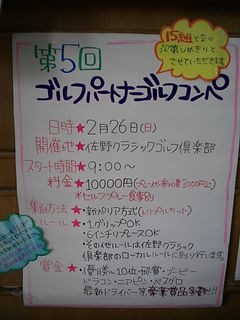 15組となり
次第しめきりと
させていただきます
第5回
ゴルフパートナーゴルフコンペ
日時★2月26日(日)
開催式★佐野クラシックゴルフ倶楽部
スタート時間★9:00〜
料金★10000円
★セルフプレー食事別
集計方法★新ペリア方式
ルール★1グリップOK
★6インチリプレースOK
その他ルールは佐野クラシック
倶楽部のローカルルールに則り行います。
賞金★優勝〜10位・飛賞・ブービー
ドラコン・ニアピン・ベスグロ
最新ドライバー等豪華賞品多数!!